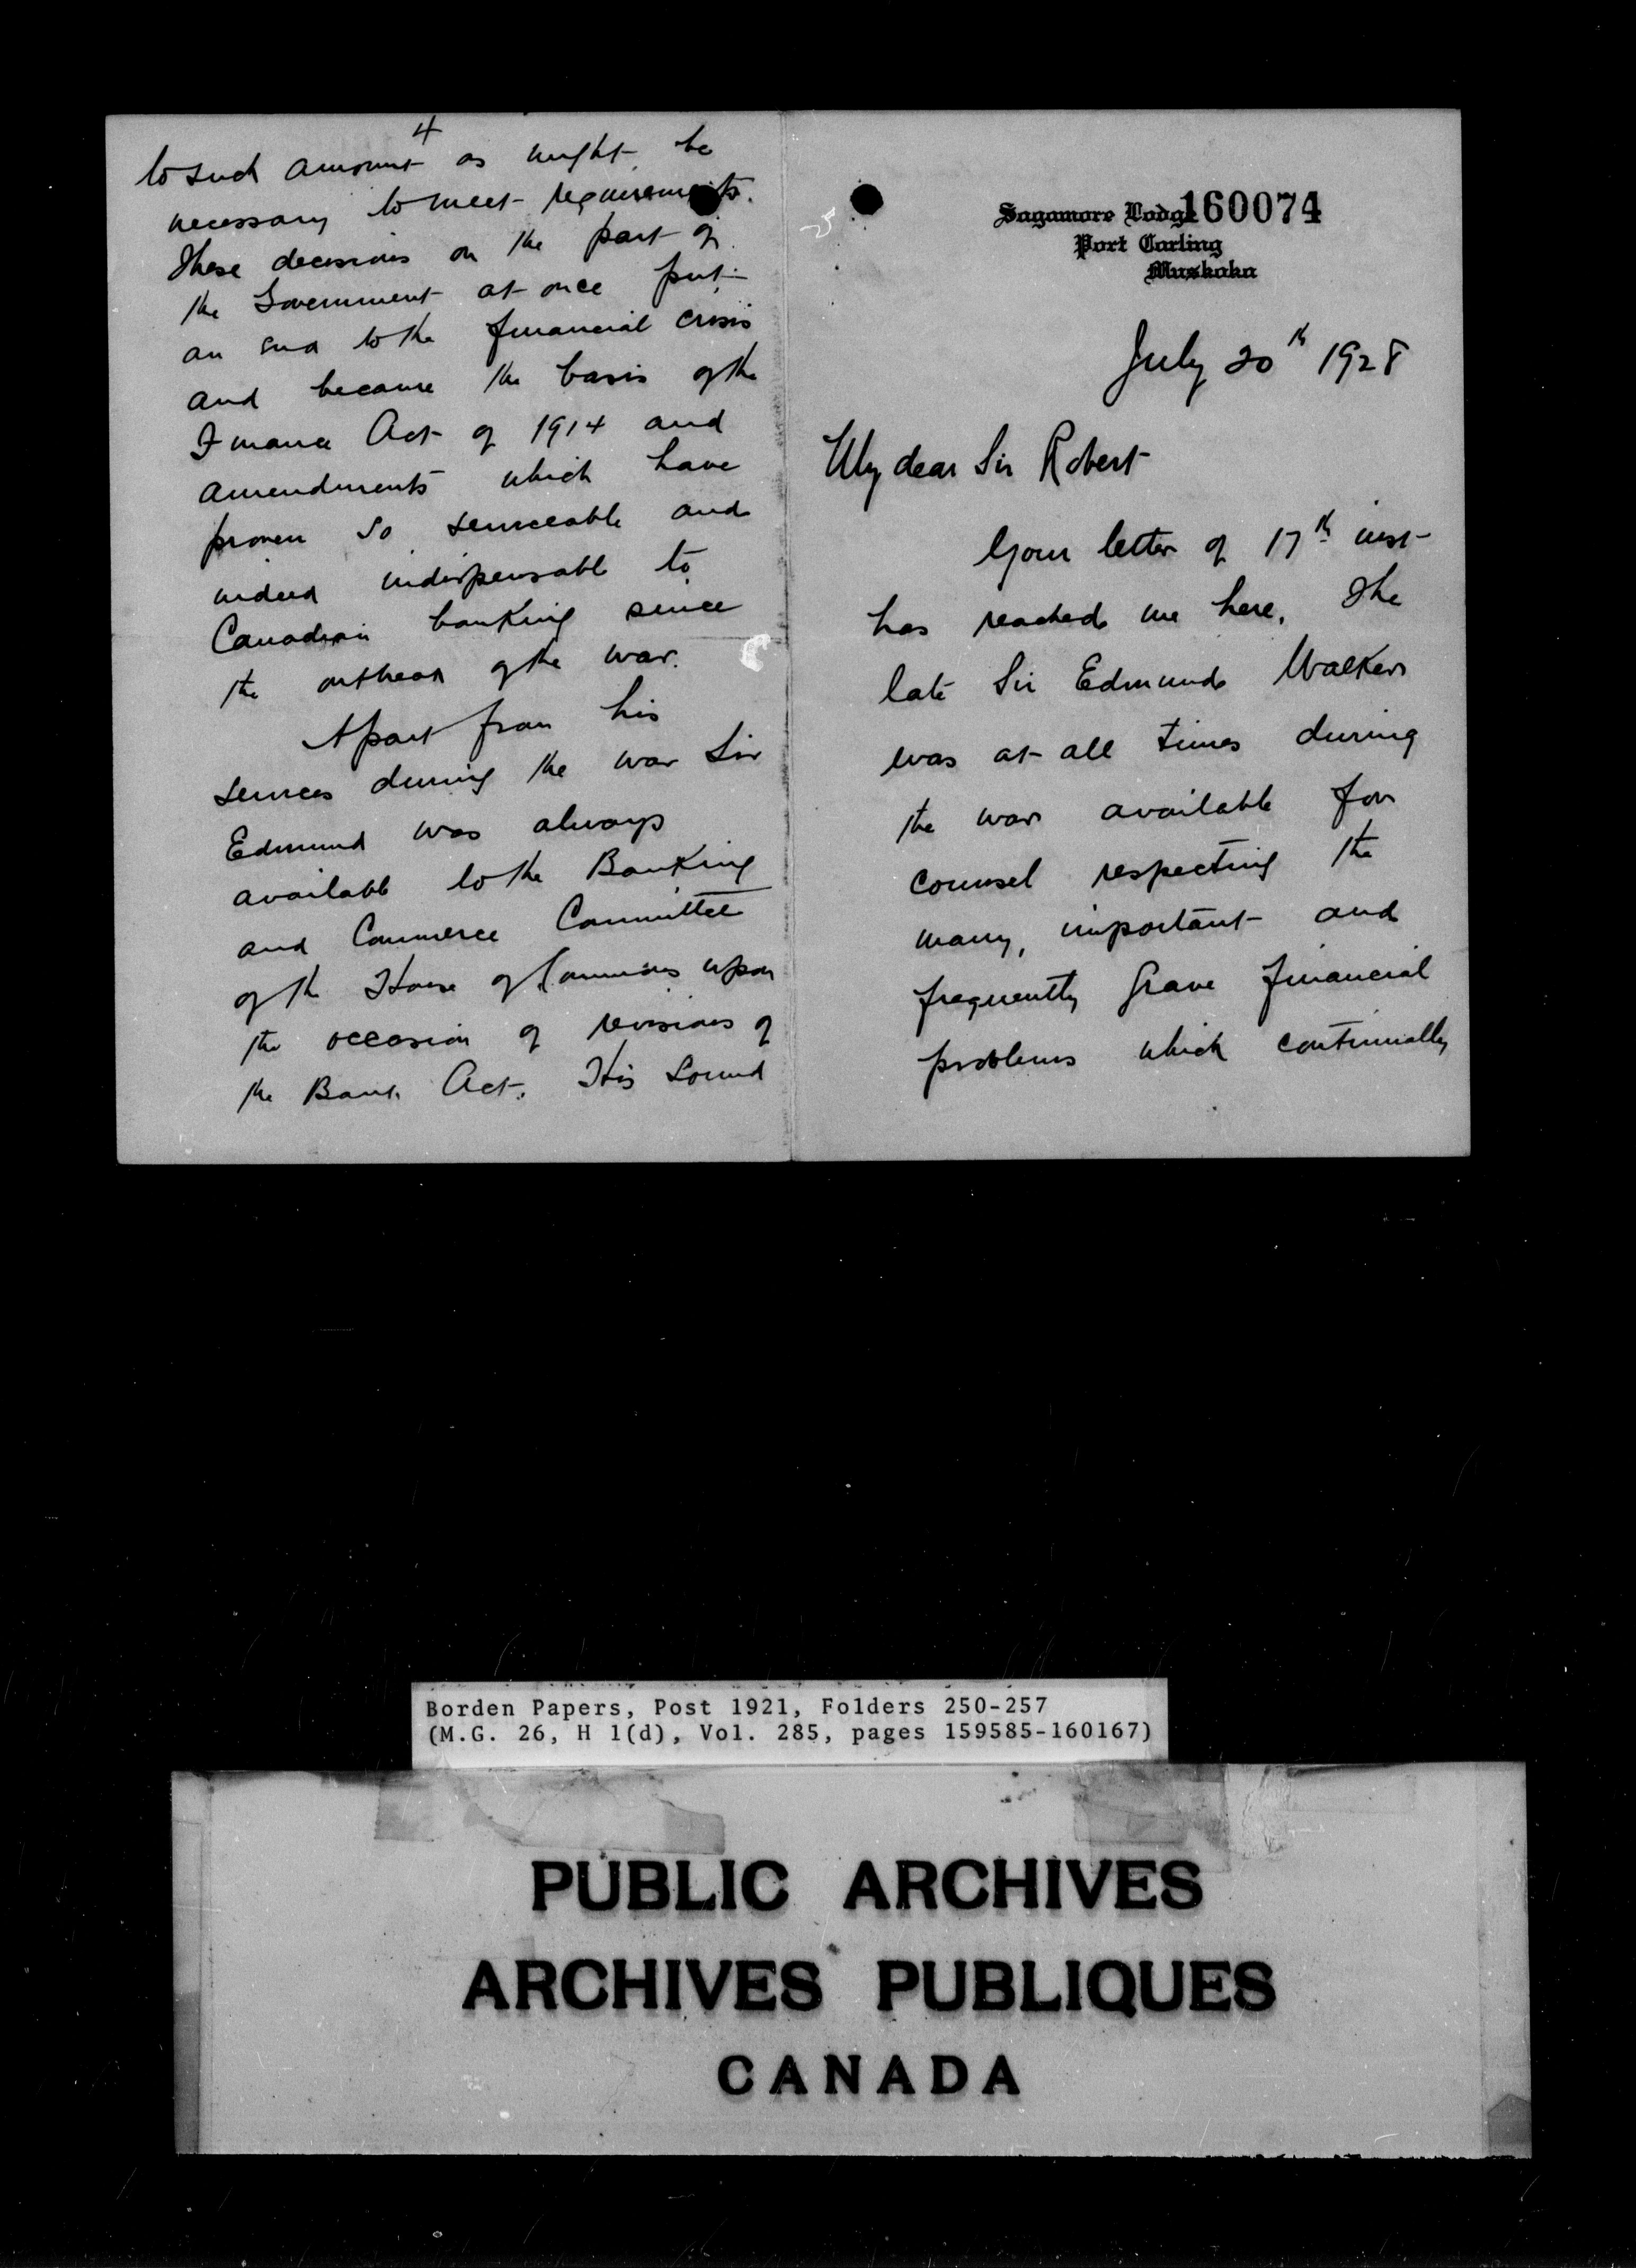 4
to such amount as might be
necessary to meet requirements.
These decisions on the part of
the Government at once put
an end to the financial crisis
and became the basis of the
Finance Act of 1914 and
amendments which have
proven so serviceable and
indeed indispensable to
Canadian banking since
the outbreak of the war.
Apart from his
services during the war Sir
Edmund was always
available to the Banking
and Commerce Committee
of the House of Commons upon
the occasion of revisions of
the Bank Act. His sound
160074
Sagamore Lodge
Port Carling
Muskoka
July 20th 1928
My dear Sir Robert
Your letter of 17th inst
has reached me here. The
late Sir Edmund Walker
was at all times during
the war available for
counsel respecting the
many, important and
frequently grave financial
problems which continually
Borden Papers, Post 1921, Folders 250-257
(M.G. 26, H 1(d), Vol. 285, pages 159585-160167)
PUBLIC ARCHIVES
ARCHIVES PUBLIQUES
CANADA